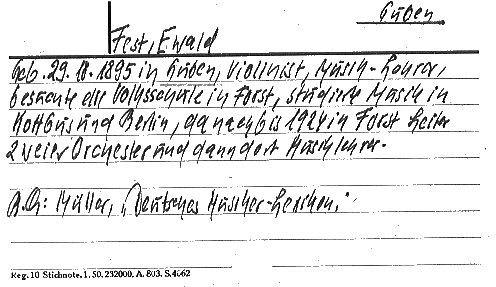 Guben
Fest, Ewald
Geb. 29. 10. 1895 in Guben, Violinist, Musik-Lehrer,
besuchte die Volksschule in Forst, studierte Musik in
Kottbus und Berlin, danach bis 1924 in Forst Leiter
zweier Orchester und dann dort Musiklehrer.
Müller, „Deutsches Musiker-Lexikon."
Reg. 10 Stichnote. 1. 50. 232000. A. 803. S. 4062